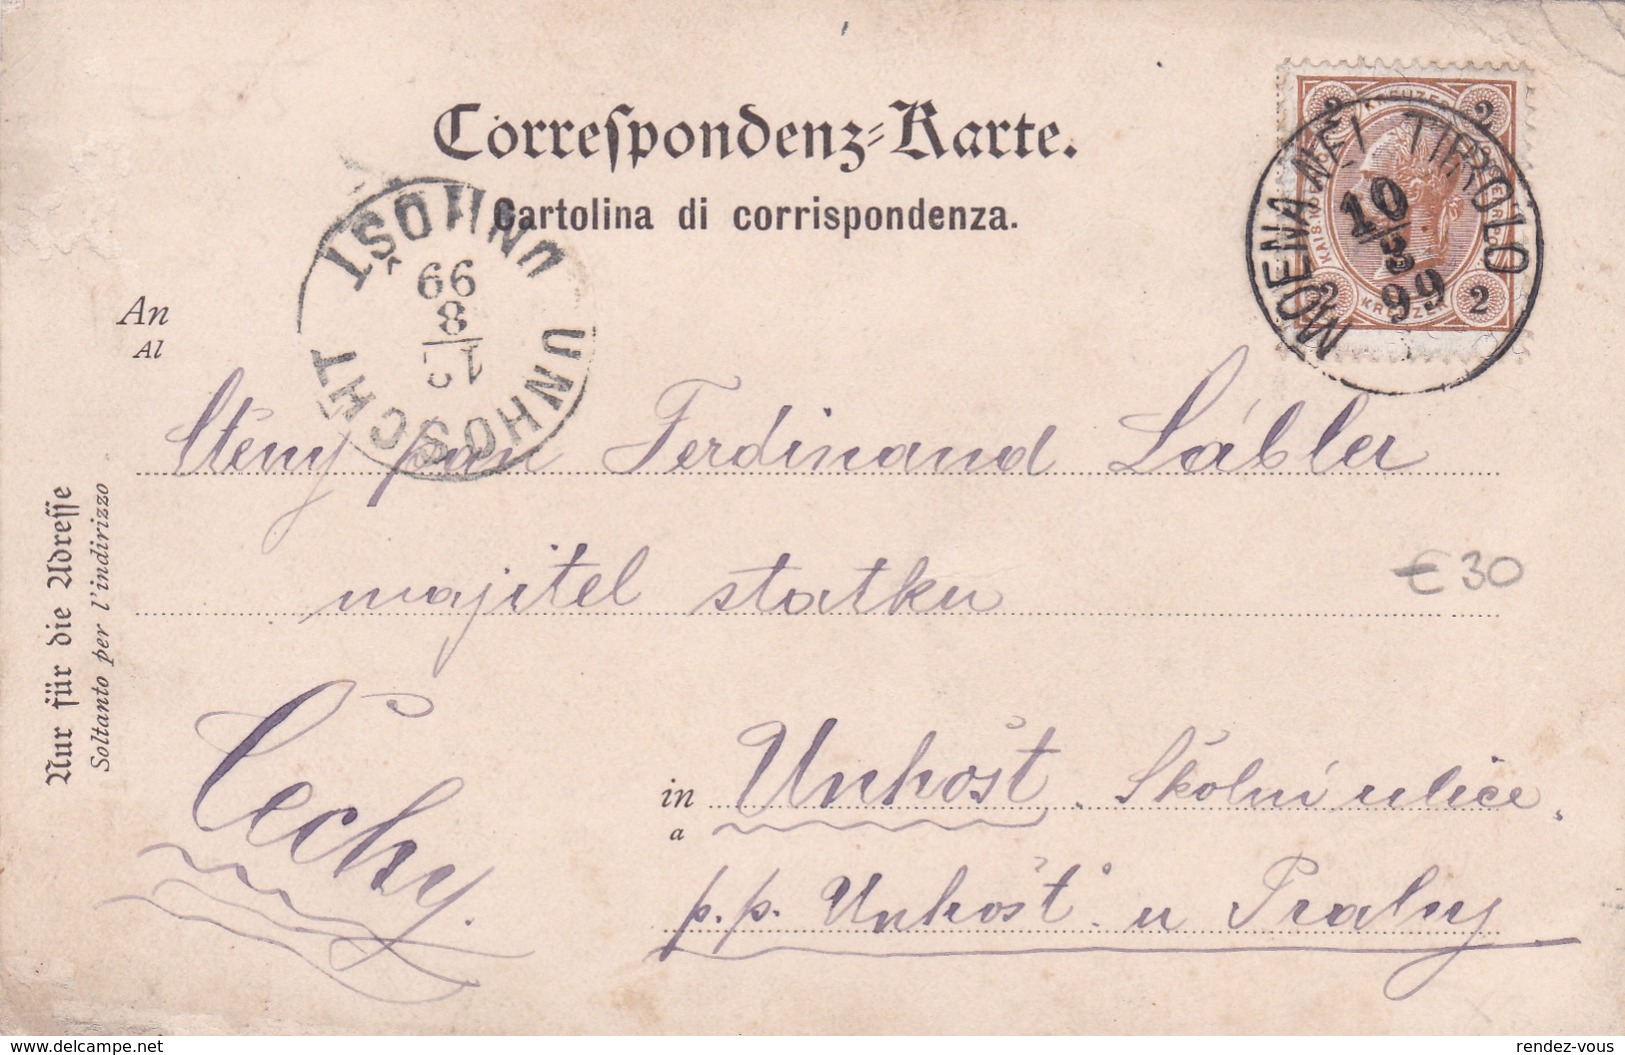 Correſpondenz-Karte.
Cartolina di corrispondenza.
KREUZER
2 2
2 2
KREUZER
MOENA NEI TIROLO
10
3
99
UNHOŠT UNHOSCHT
12
3
99
An
Al
Ctěny pan Ferdinand Lábler
majitel statku
€30
Čechy.
in
a
Unhošt. Školní ulice,
p.p. Unhošť u Prahy
Nur für die Adreſſe
Soltanto per l'indirizzo
delcampe.net
rendez-vous